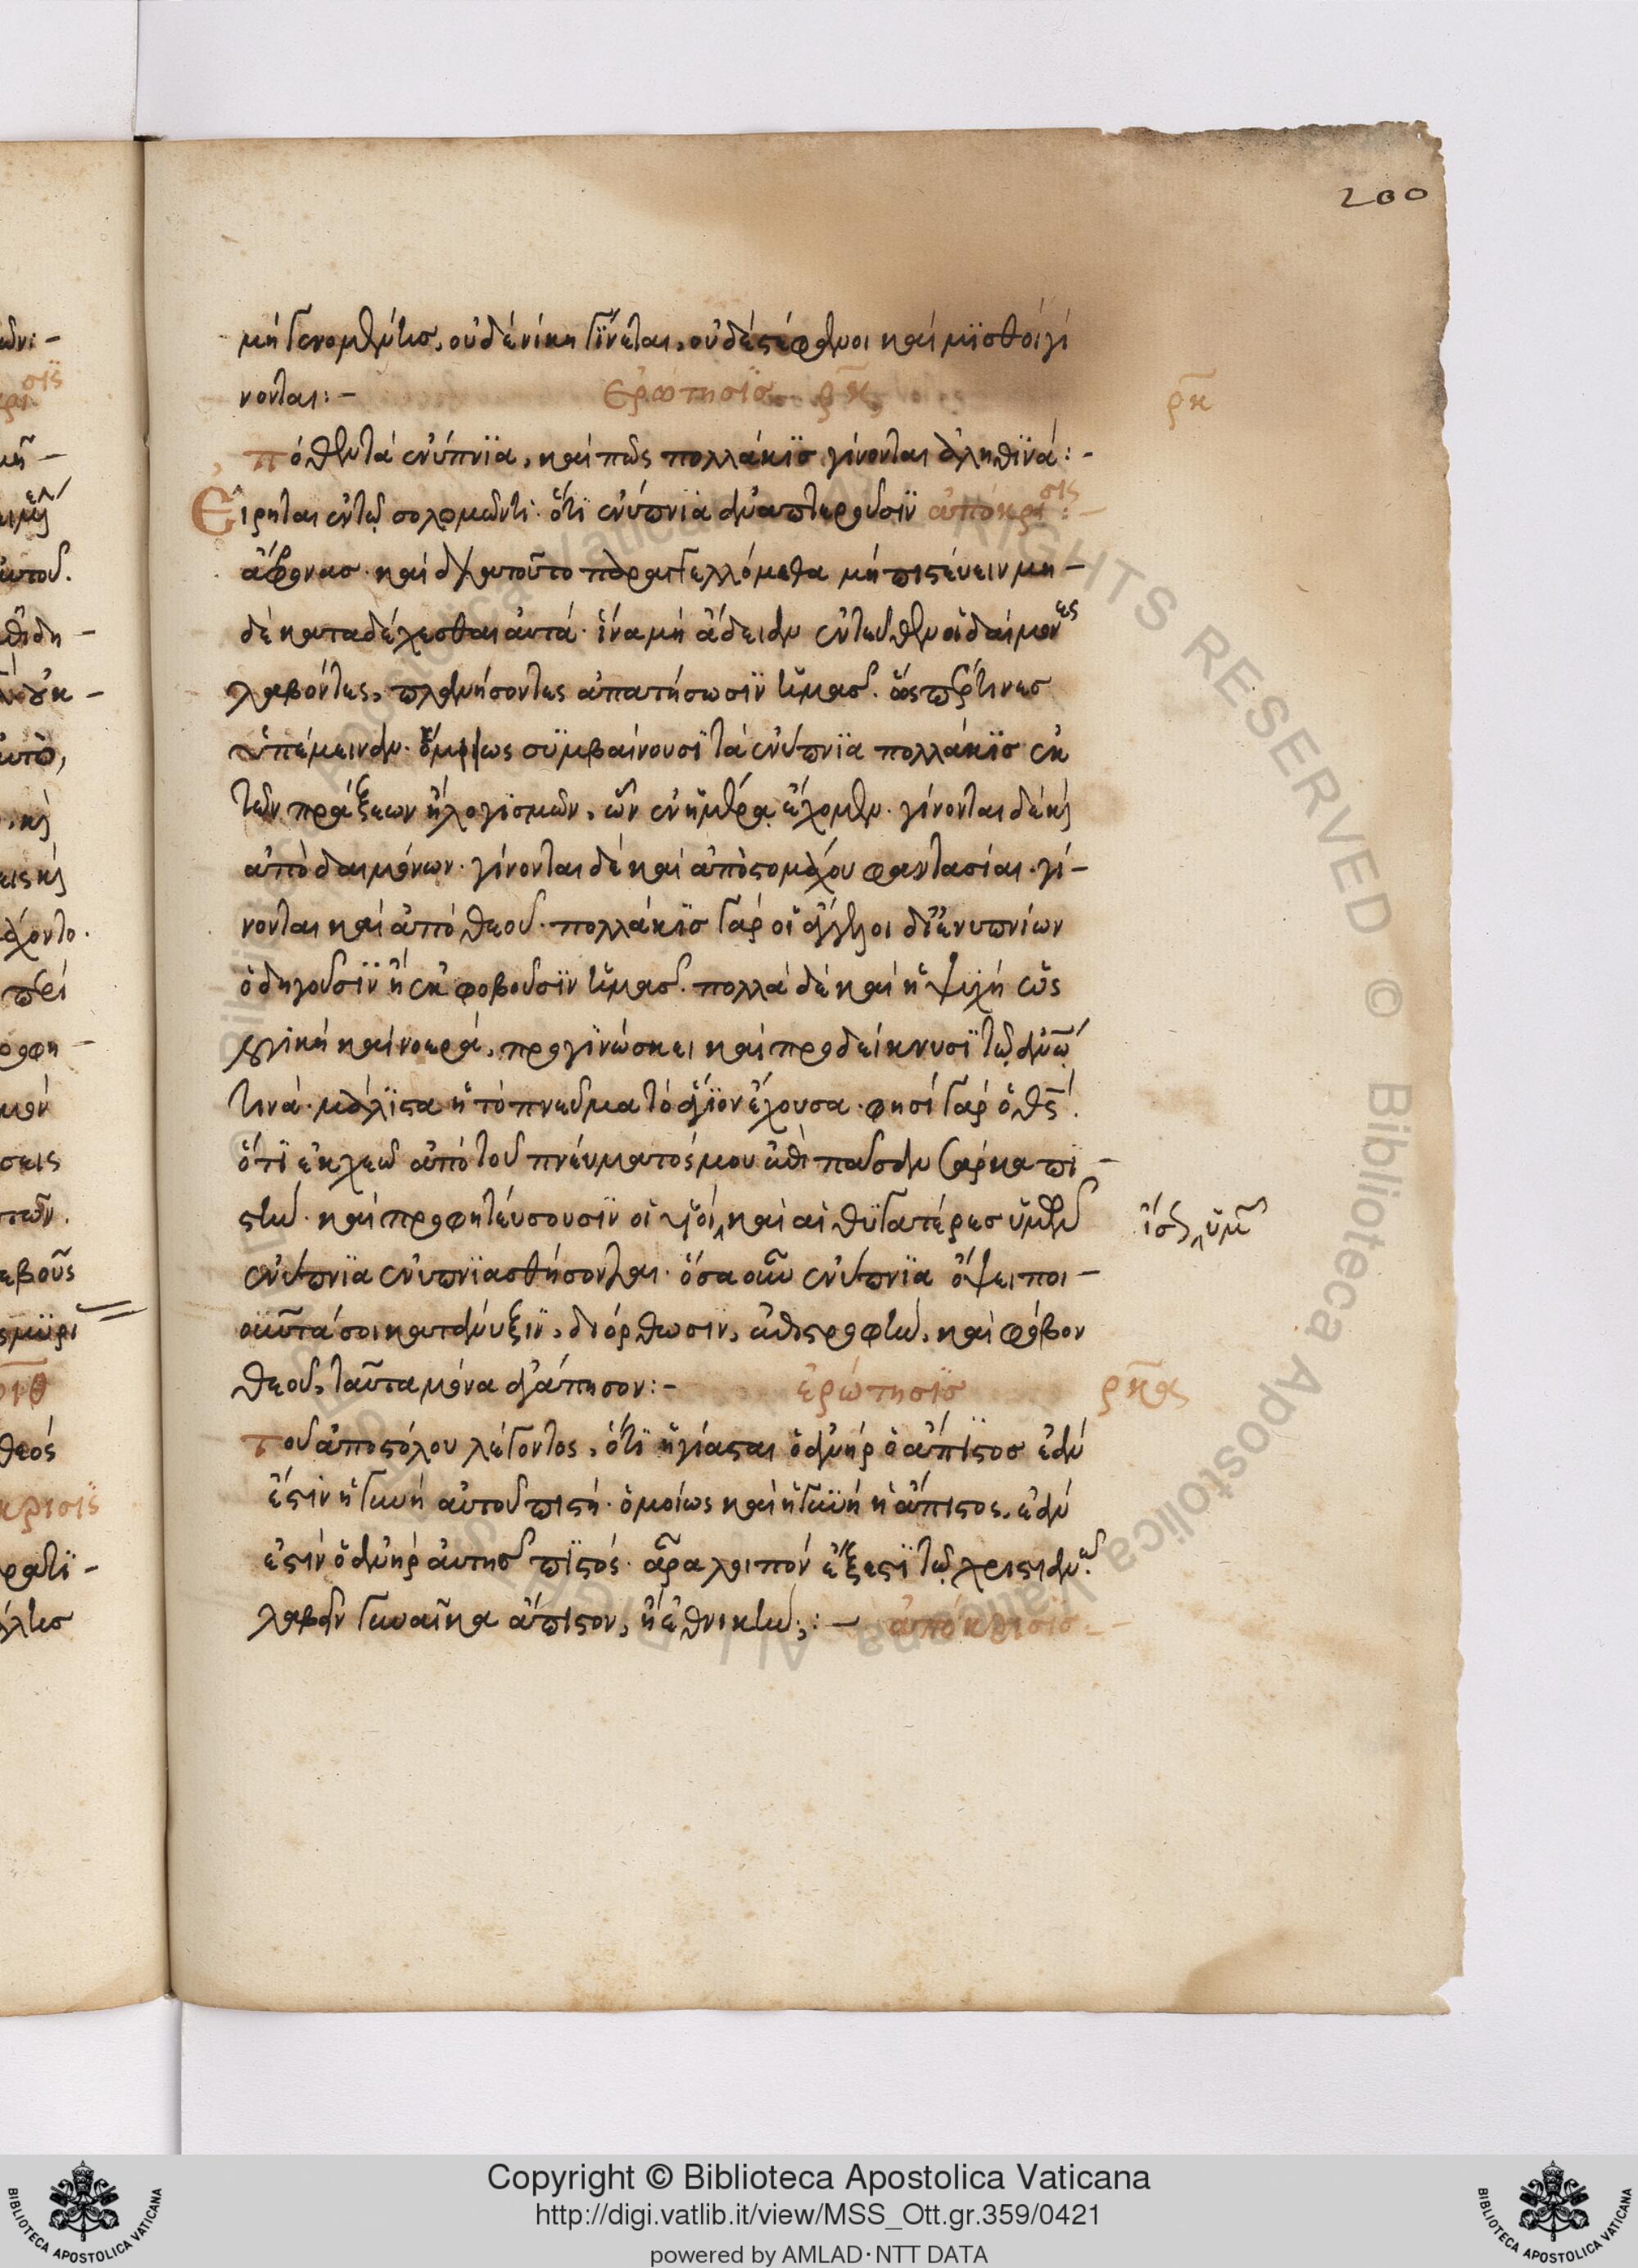 200
μὴ γενομένης, οὐδὲ νίκη γίνεται, οὐδὲ στέφανοι καὶ μισθοὶ γί
νονται:-
ἐρώτησις ρκ
ρκ
πόθεν τὰ ἐνύπνια, καὶ πῶς πολλάκις γίνονται ἀληθινά:-
Εἴρηται ἐν τῷ σολομῶντι· ὅτι ἐνύπνια ἀναπτεροῦσιν
ἀπόκρισις:-
ἄφρονας· καὶ διὰ τοῦτο παραγγελλόμεθα μὴ πιστεύειν μη-
δὲ καταδέχεσθαι αὐτά· ἵνα μὴ ἄδειαν ἐντεῦθεν οἱ δαίμονες
λαβόντες, πλανήσοντες ἀπατήσωσιν ἡμᾶς. ὥσπερ τινες
ὑπέμειναν. ὅμως συμβαίνουσι τὰ ἐνύπνια πολλάκις ἐκ
τῶν πράξεων ἢ λογισμῶν, ὧν ἐν ἡμέρᾳ ἔχομεν. γίνονται δὲ καὶ
ἀπὸ δαιμόνων· γίνονται δὲ καὶ ἀπὸ στομάχου φαντασίαι· γί-
νονται καὶ ἀπὸ θεοῦ· πολλάκις γὰρ οἱ ἄγγελοι δι' ἐνυπνίων
ὁδηγοῦσιν ἢ ἐκφοβοῦσιν ἡμᾶς. πολλὰ δὲ καὶ ἡ ψυχὴ ὡς
λογικὴ καὶ νοερά, προγινώσκει καὶ προδείκνυσι τῷ ἀνω
τινά· μάλιστα ἡ τὸ πνεῦμα τὸ ἅγιον ἔχουσα· φησὶ γὰρ ὁ θς.
ὅτι ἐκχεῶ ἀπὸ τοῦ πνεύματός μου ἐπὶ πᾶσαν σάρκα πι-
στήν· καὶ προφητεύσουσιν οἱ υἱοί, καὶ αἱ θυγατέρες ὑμῶν
ἐνύπνια ἐνυπνιασθήσονται· ὅσα οὖν ἐνύπνια ὄψει ποι-
οῦντά σοι κατάνυξιν, διόρθωσιν, ἐπιστροφήν, καὶ φόβον
θεοῦ, ταῦτα μόνα ἀγάπησον:-
ἐρώτησις
ρκα
τοῦ ἀποστόλου λέγοντος, ὅτι ἡγίασται ὁ ἀνὴρ ὁ ἄπιστος ἐὰν
ἔστιν ἡ γυνὴ αὐτοῦ πιστή· ὁμοίως καὶ ἡ γυνὴ ἡ ἄπιστος, ἐὰν
ἐστὶν ὁ ἀνὴρ αὐτῆς πιστός· ἆρα λοιπὸν ἔξεστι τῷ χριστιανῷ
λαβεῖν γυναῖκα ἄπιστον, ἢ ἐθνικήν;:-
ἀπόκρισις:-
Copyright © Biblioteca Apostolica Vaticana
http://digi.vatlib.it/view/MSS_Ott.gr.359/0421
powered by AMLAD·NTT DATA
BIBLIOTECA APOSTOLICA VATICANA
BIBLIOTECA APOSTOLICA VATICANA